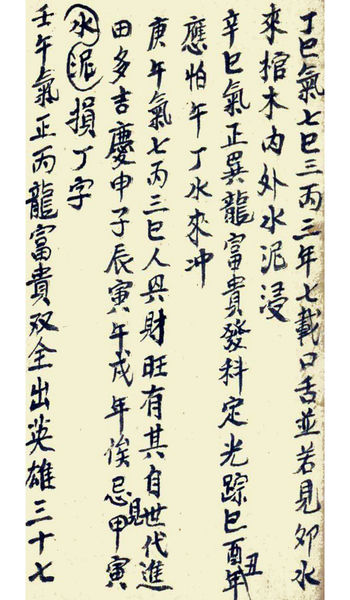 丁巳氣七巳三丙三年七載口舌並若見卯水
來棺木內外水泥浸
辛巳氣正異龍富貴發科定光踪巳酉丑年
應怕午丁水來冲
庚午氣七丙三巳人興財旺有其自世代進
田多吉慶申子辰寅午戌年俟見忌甲寅
水泥損丁字
壬午氣正丙龍富貴双全出英雄三十七